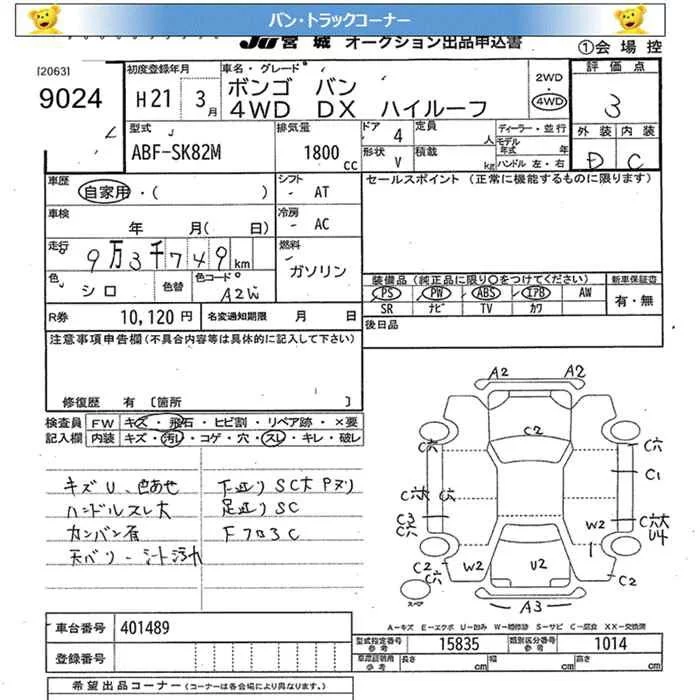 バン・トラックコーナー
JU 宮城 オークション出品申込書
①会場控
[2063]
9024
初度登録年月
H21 3月
車名・グレード
ボンゴ バン
4WD DX ハイルーフ
2WD
4WD
評価点
3
外装 内装
D C
型式
ABF-SK82M
排気量
1800 cc
ドア 4
形状 V
定員 人
積載 kg
ディーラー・並行
モデル年式 年
ハンドル 左・右
車歴
自家用・( )
シフト
- AT
セールスポイント (正常に機能するものに限ります)
車検
年 月( 日)
冷房
- AC
走行
9万3千749km
燃料
ガソリン
色
シロ
色替
色コード
A2W
装備品 (純正品に限り○をつけてください)
新車保証書
PS PW ABS エアB AW
有・無
SR ナビ TV カワ
R券 10,120 円
名変通知期限 月 日
後日品
注意事項申告欄(不具合内容等は具体的に記入して下さい)
修復歴 有 [箇所 ]
検査員
記入欄
FW キズ・飛石・ヒビ割・リペア跡・×要
内装 キズ・汚レ・コゲ・穴・スレ・キレ・破レ
キズU、色あせ
ハンドルスレ大
カンバン有
天バリ-シート汚れ
下廻りSC大Pヌリ
足廻りSC
Fフロ3C
A2 A2
C2
C穴
C穴
C1
C穴 C穴
C3
C穴
W2
C穴大
U4
C2
C穴
W2
U2
C2
スペア
A3
A-キズ E-エクボ U-凹み W-補修跡 S-サビ C-腐食 XX-交換済
車台番号 401489
登録番号
型式指定番号 参考 15835
類別区分番号 参考 1014
参考 長さ cm 幅 cm 高さ cm
希望出品コーナー (コーナーは各会場により異なります。)